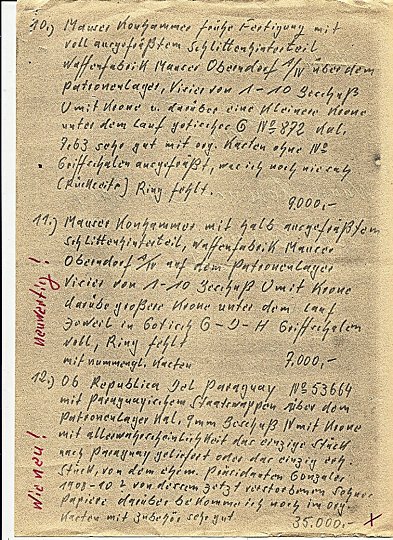 10.) Mauser Konhammer frühe Fertigung mit
voll ausgefräßtem Schlittenhinterteil
Waffenfabrik Mauser Oberndorf a/N über dem
Patronenlager, Visier von 1-10 Beschuß
U mit Krone u. darüber eine kleinere Krone
unter dem Lauf gotisches G № 872 Kal.
7,63 sehr gut mit org. Kasten ohne №
Griffschalen ausgefräßt, was ich noch nie sah
(Rückseite) Ring fehlt.
9.000,-
11.) Mauser Konhammer mit halb ausgefräßtem
Schlittenhinterteil, Waffenfabrik Mauser
Oberndorf a/N auf dem Patronenlager
Visier von 1-10 Beschuß U mit Krone
darüber großere Krone unter dem Lauf
jeweil in Gotisch G-D-H Griffschalen
voll, Ring fehlt
mit nummerngl. Kasten 7.000,-
neuwertig!
12.) 06 Republica del Paraguay № 53664
mit Paraguayischem Staatswappen über dem
Patronenlager Kal. 9mm Beschuß N mit Krone
mit allerwahrscheinlichkeit das einzige Stück
nach Paraguay geliefert oder das einzig erh.
Stück, von dem ehem. Präsidenten Gonzales
1908-10? von dessen jetzt verstorbenem Sohne
Papiere darüber bekomme ich noch im org.
Kasten mit Zubehör sehr gut 35.000,- X
Wie neu!